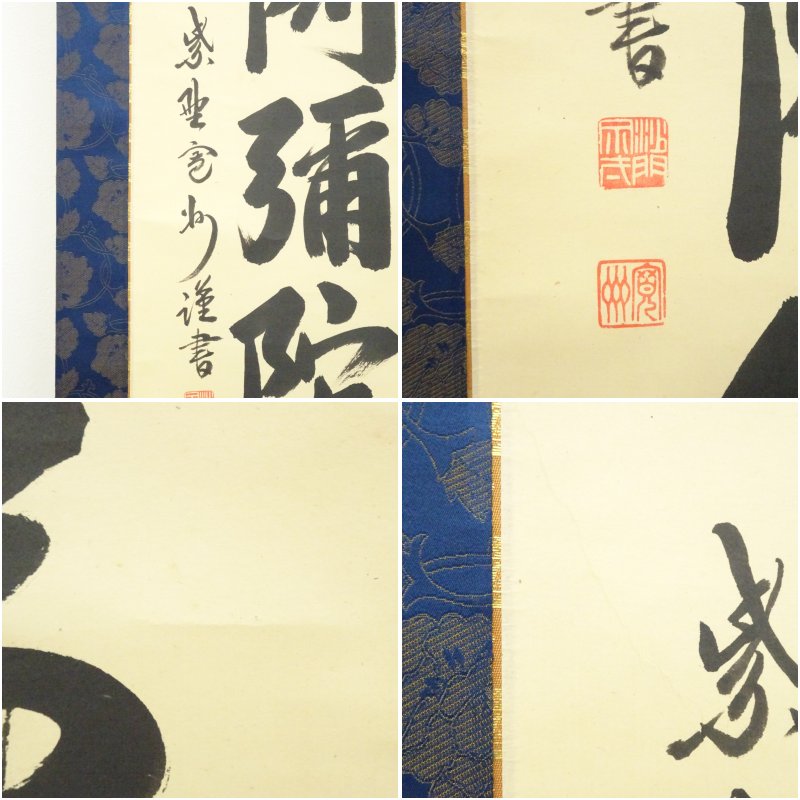 阿彌陀
紫野寛州謹書
書
寛州
紫